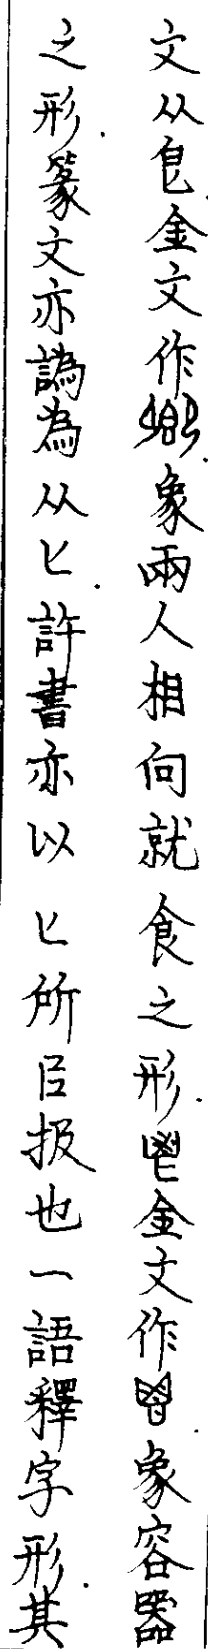 文从皀金文作象兩人相向就食之形.鬯金文作象容器
之形.篆文亦譌為从匕.許書亦以匕所㠯扱也一語釋字形.其